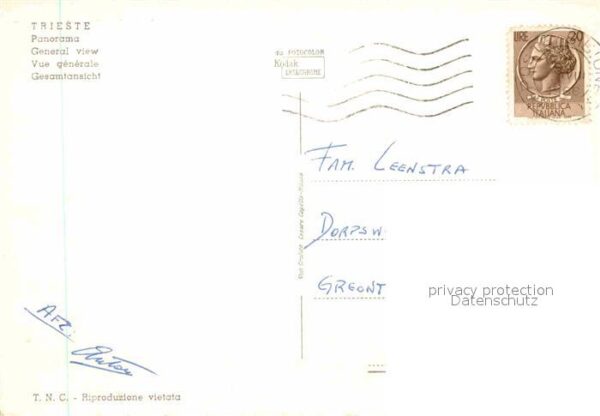 TRIESTE
Panorama
General view
Vue générale
Gesamtansicht
da FOTOCOLOR
Kodak
EKTACHROME
LIRE 20
REPVBBLICA
ITALIANA
FAM. LEENSTRA
DORPSW
GREONT
privacy protection
Datenschutz
AFZ.
Anton
T. N. C. - Riproduzione vietata